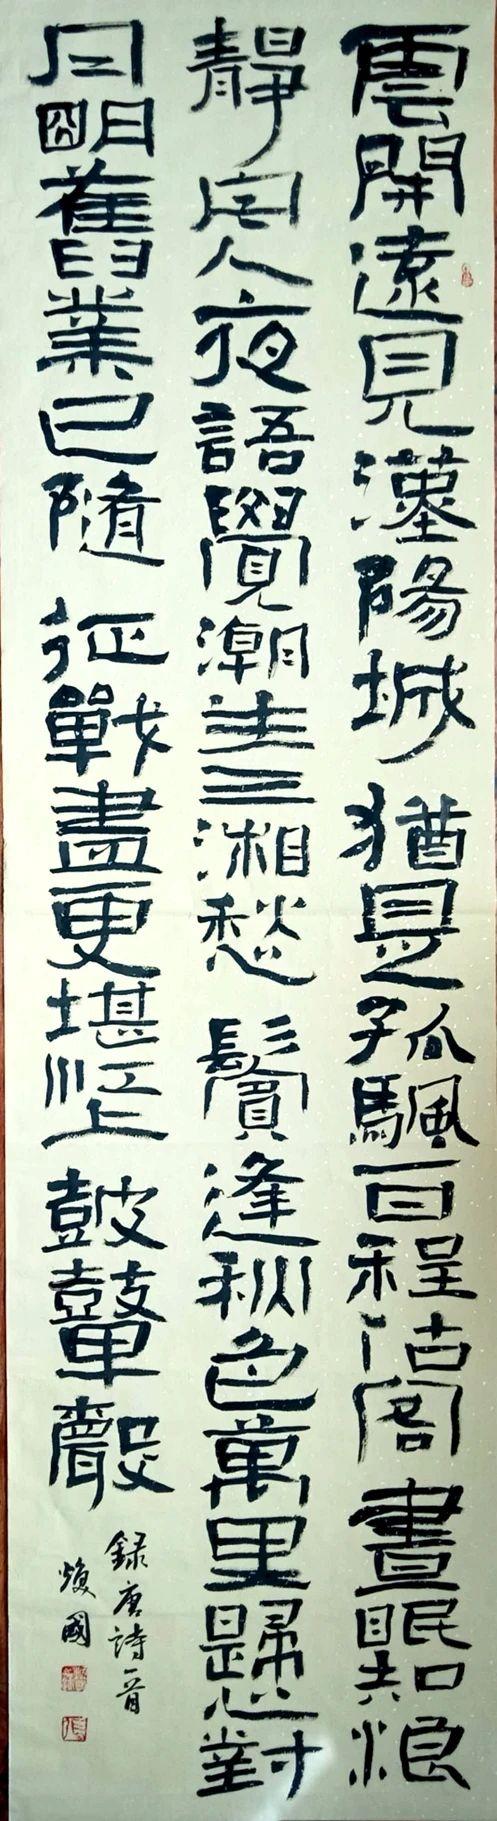 雲開遠見漢陽城猶是孤颿一日程估客晝眠知浪
靜舟人夜語覺潮生三湘愁鬢逢秋色萬里歸心對
月明舊業已隨征戰盡更堪江上鼓鼙聲
録唐詩一首
煥國